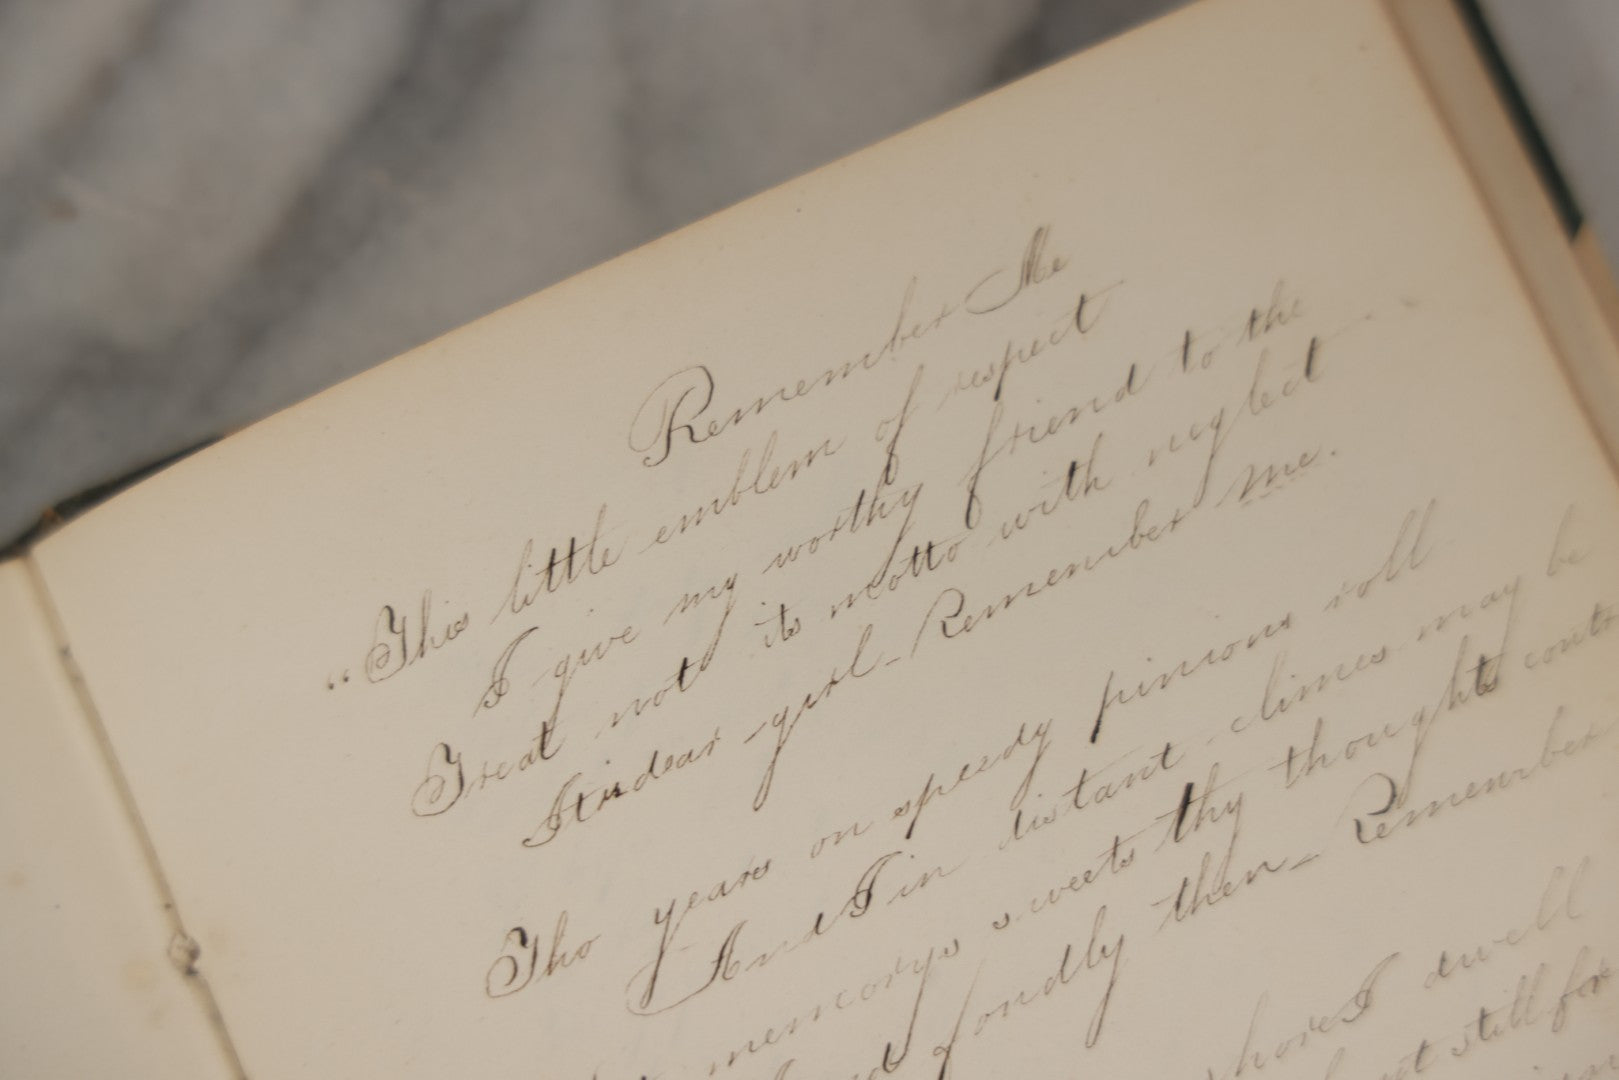 Remember Me
"This little emblem of respect
I give my worthy friend to the
Treat not its motto with neglect
dear girl - Remember me.
Tho years on speedy pinions roll
And I in distant climes may be
memorys sweets thy thoughts
fondly then - Remember
I dwell
still for